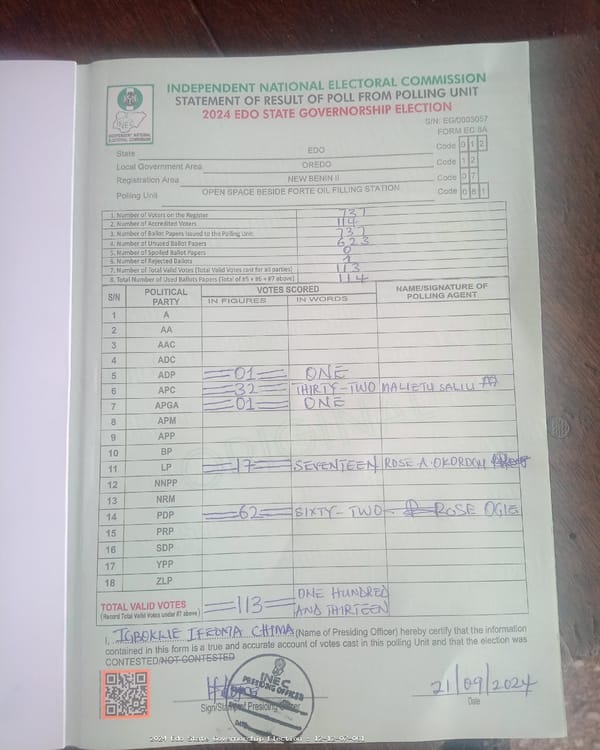 INDEPENDENT NATIONAL ELECTORAL COMMISSION
STATEMENT OF RESULT OF POLL FROM POLLING UNIT
2024 EDO STATE GOVERNORSHIP ELECTION
S/N: EG/0003057
FORM EC 8A
INEC
INDEPENDENT NATIONAL ELECTORAL COMMISSION
State EDO Code 012
Local Government Area OREDO Code 12
Registration Area NEW BENIN II Code 07
Polling Unit OPEN SPACE BESIDE FORTE OIL FILLING STATION Code 081
1. Number of Voters on the Register 737
2. Number of Accredited Voters 114
3. Number of Ballot Papers Issued to the Polling Unit 737
4. Number of Unused Ballot Papers 623
5. Number of Spoiled Ballot Papers 0
6. Number of Rejected Ballots 1
7. Number of Total Valid Votes (Total Valid Votes cast for all parties) 113
8. Total Number of Used Ballots Papers (Total of #5 + #6 + #7 above) 114
S/N POLITICAL PARTY VOTES SCORED NAME/SIGNATURE OF POLLING AGENT
IN FIGURES IN WORDS
1 A
2 AA
3 AAC
4 ADC
5 ADP 01 ONE
6 APC 32 THIRTY-TWO MALIETU SALIU
7 APGA 01 ONE
8 APM
9 APP
10 BP
11 LP 17 SEVENTEEN ROSE A. OKORDOU
12 NNPP
13 NRM
14 PDP 62 SIXTY-TWO ROSE OGIE
15 PRP
16 SDP
17 YPP
18 ZLP
TOTAL VALID VOTES 113 ONE HUNDRED AND THIRTEEN
(Record Total Valid Votes under #7 above)
I, IGBOKWE IFEOMA CHIMA (Name of Presiding Officer) hereby certify that the information
contained in this form is a true and accurate account of votes cast in this polling Unit and that the election was
CONTESTED/NOT CONTESTED
INEC
PRESIDING OFFICER
DATE
21/09/2024
Sign/Stamp of Presiding Officer Date
2024 Edo State Governorship Election - 12-12-07-081